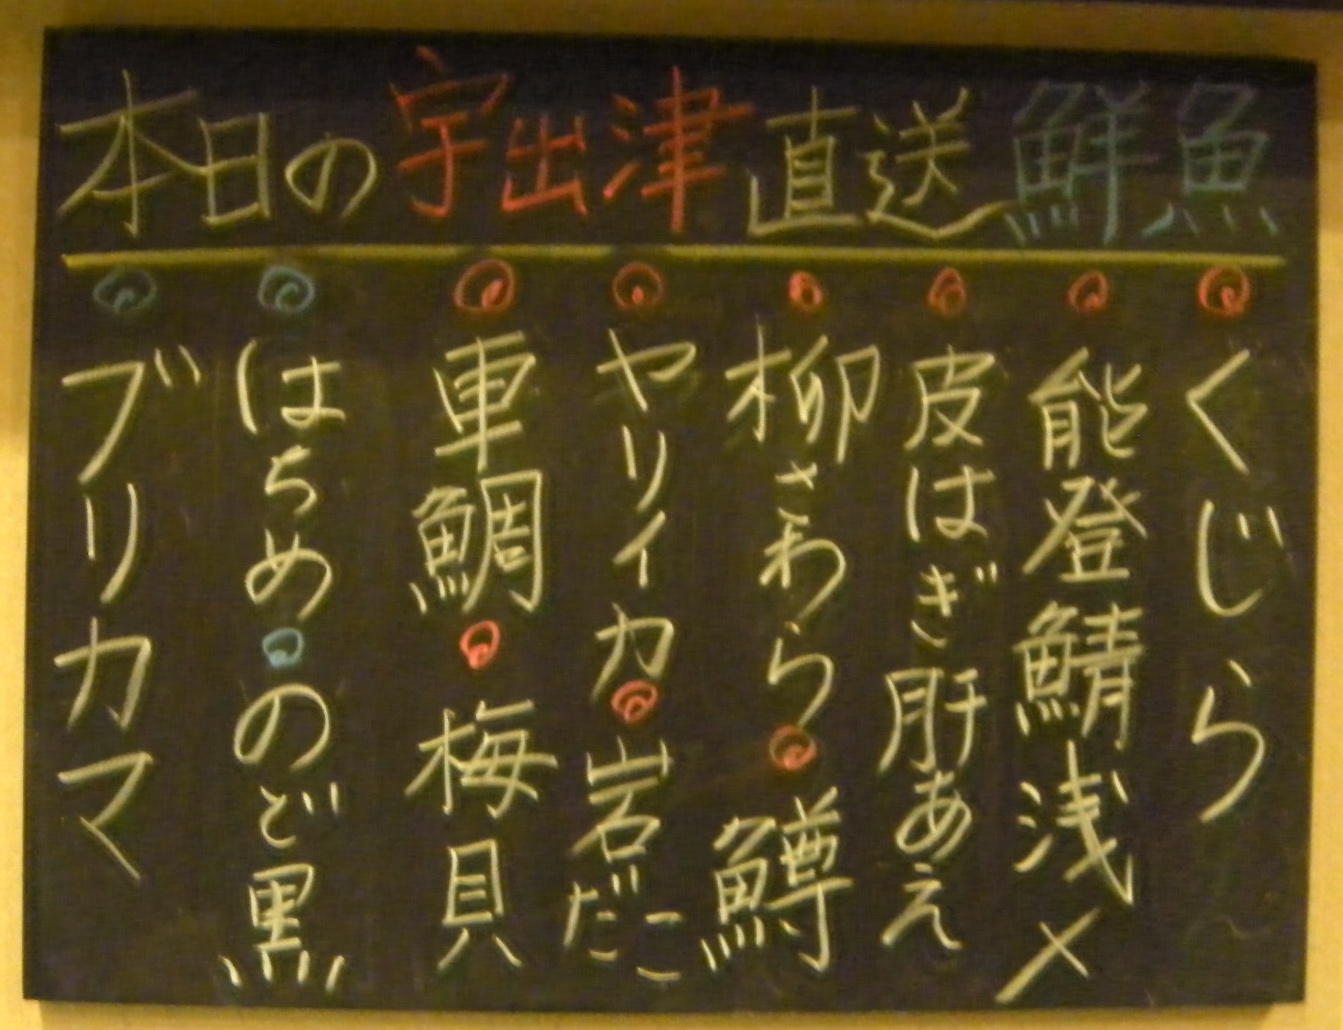 本日の宇出津直送鮮魚
くじら
能登鯖浅〆
皮はぎ肝あえ
柳さわら 鱒
ヤリイカ 岩だこ
車鯛 梅貝
はちめ のど黒
ブリカマ